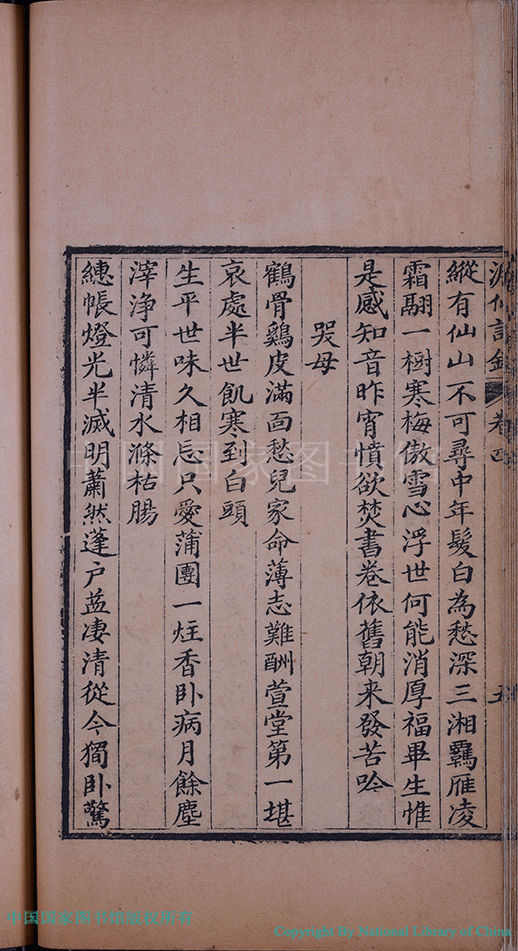 卷四
縱有仙山不可尋中年髮白為愁深三湘羈雁凌
霜翮一樹寒梅傲雪心浮世何能消厚福畢生惟
是感知音昨宵憤欲焚書卷依舊朝来發苦吟
哭母
鶴骨鷄皮滿面愁兒家命薄志難酬萱堂第一堪
哀處半世飢寒到白頭
生平世味久相忘只愛蒲團一炷香卧病月餘塵
滓浄可憐清水滌枯腸
繐帳燈光半滅明蕭然蓬户益凄清從今獨卧驚
中国国家图书馆
中国国家图书馆版权所有
Copyright By National Library of China